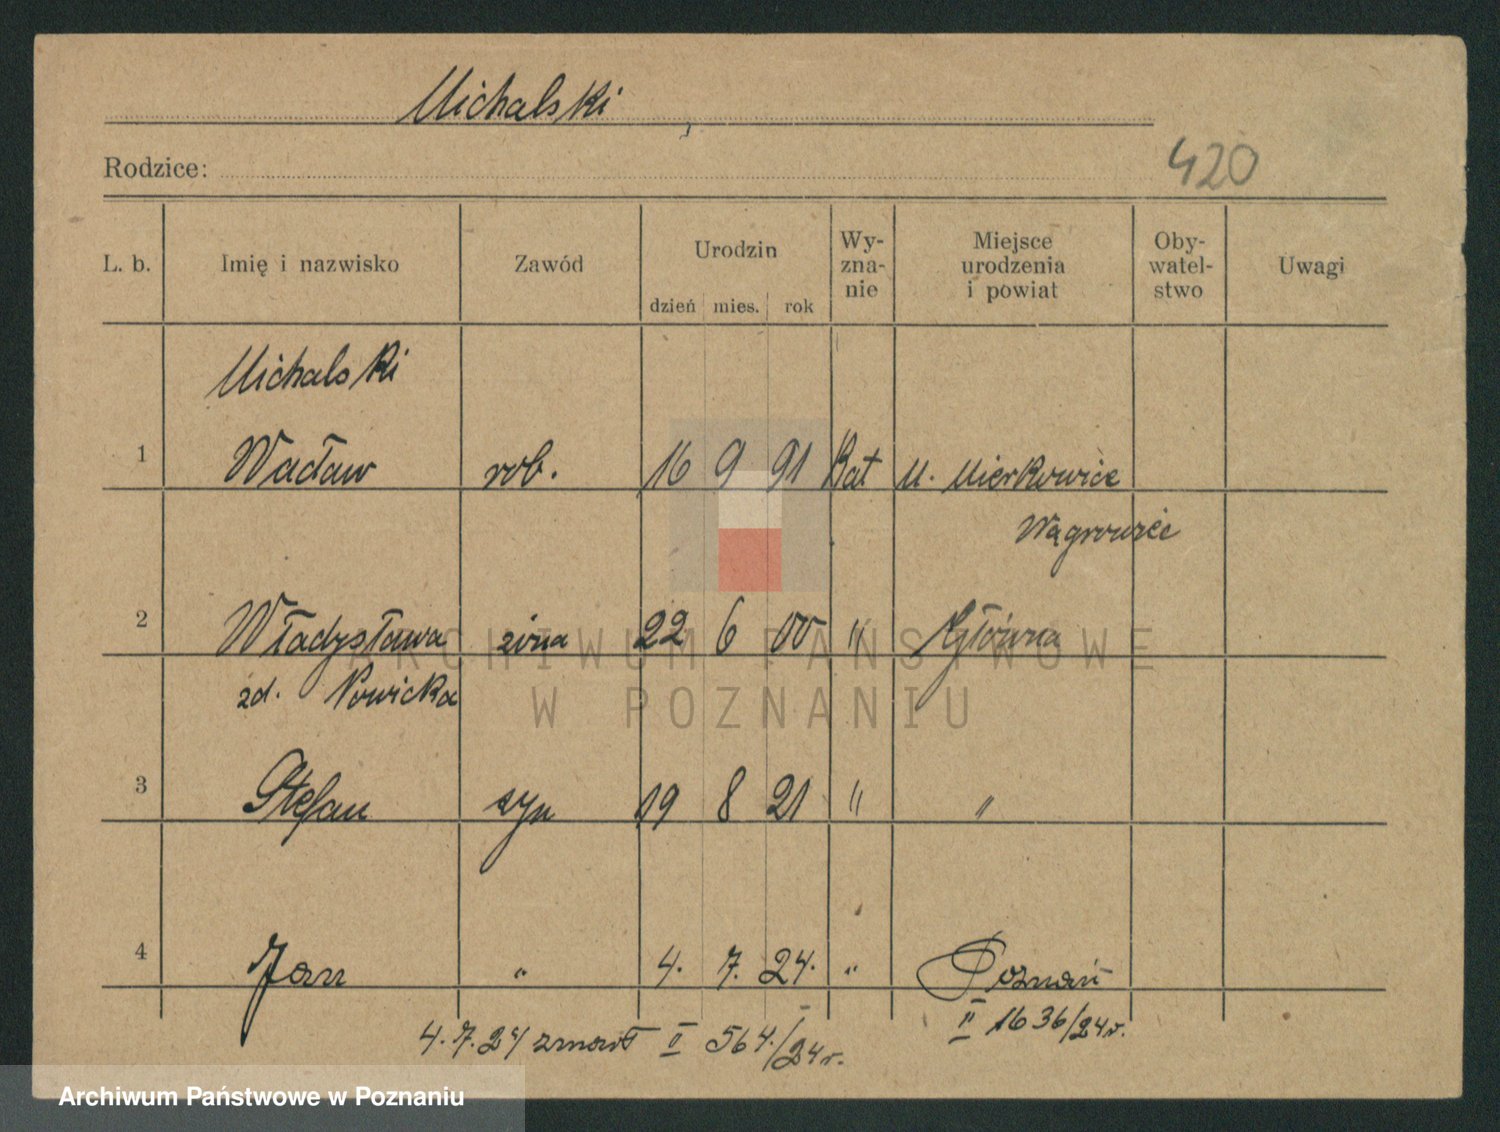 Michalski
Rodzice:
420
L. b. Imię i nazwisko Zawód Urodzin dzień mies. rok Wy-zna-nie Miejsce urodzenia i powiat Oby-watel-stwo Uwagi
Michalski
1 Wacław rob. 16 9 91 Kat M. Mierkowice
Wągrowiec
2 Władysława żona 22 6 00 " Główna
zd. Nowicka
3 Stefan syn 19 8 21 " "
4 Jan " 4. 7. 24. " Poznań
II 1636/24r.
4.7.24 zmarł II 564./24r.
ARCHIWUM PAŃSTWOWE
W POZNANIU
Archiwum Państwowe w Poznaniu